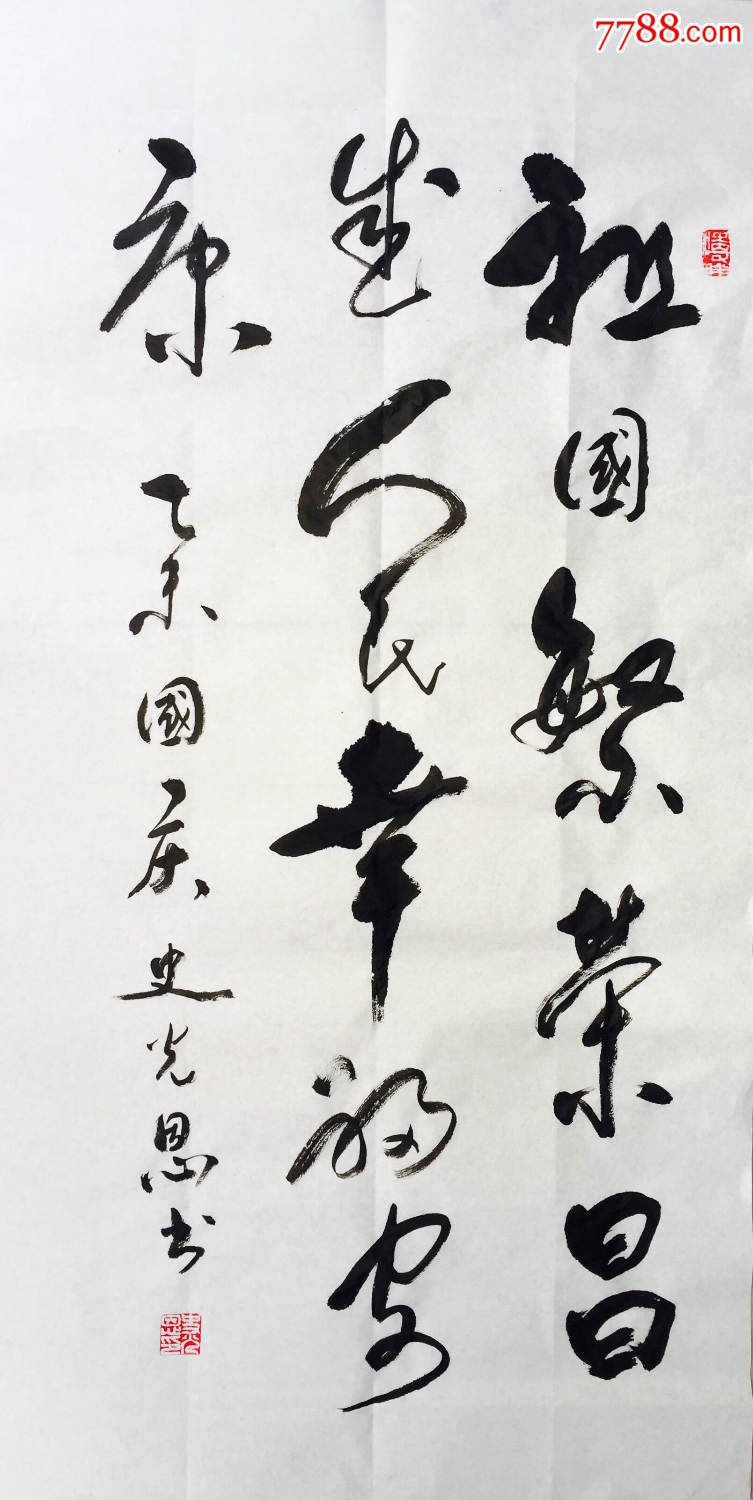 7788.com
祖國繁荣昌
盛人民幸福安
康 乙未國庆 史光恩书